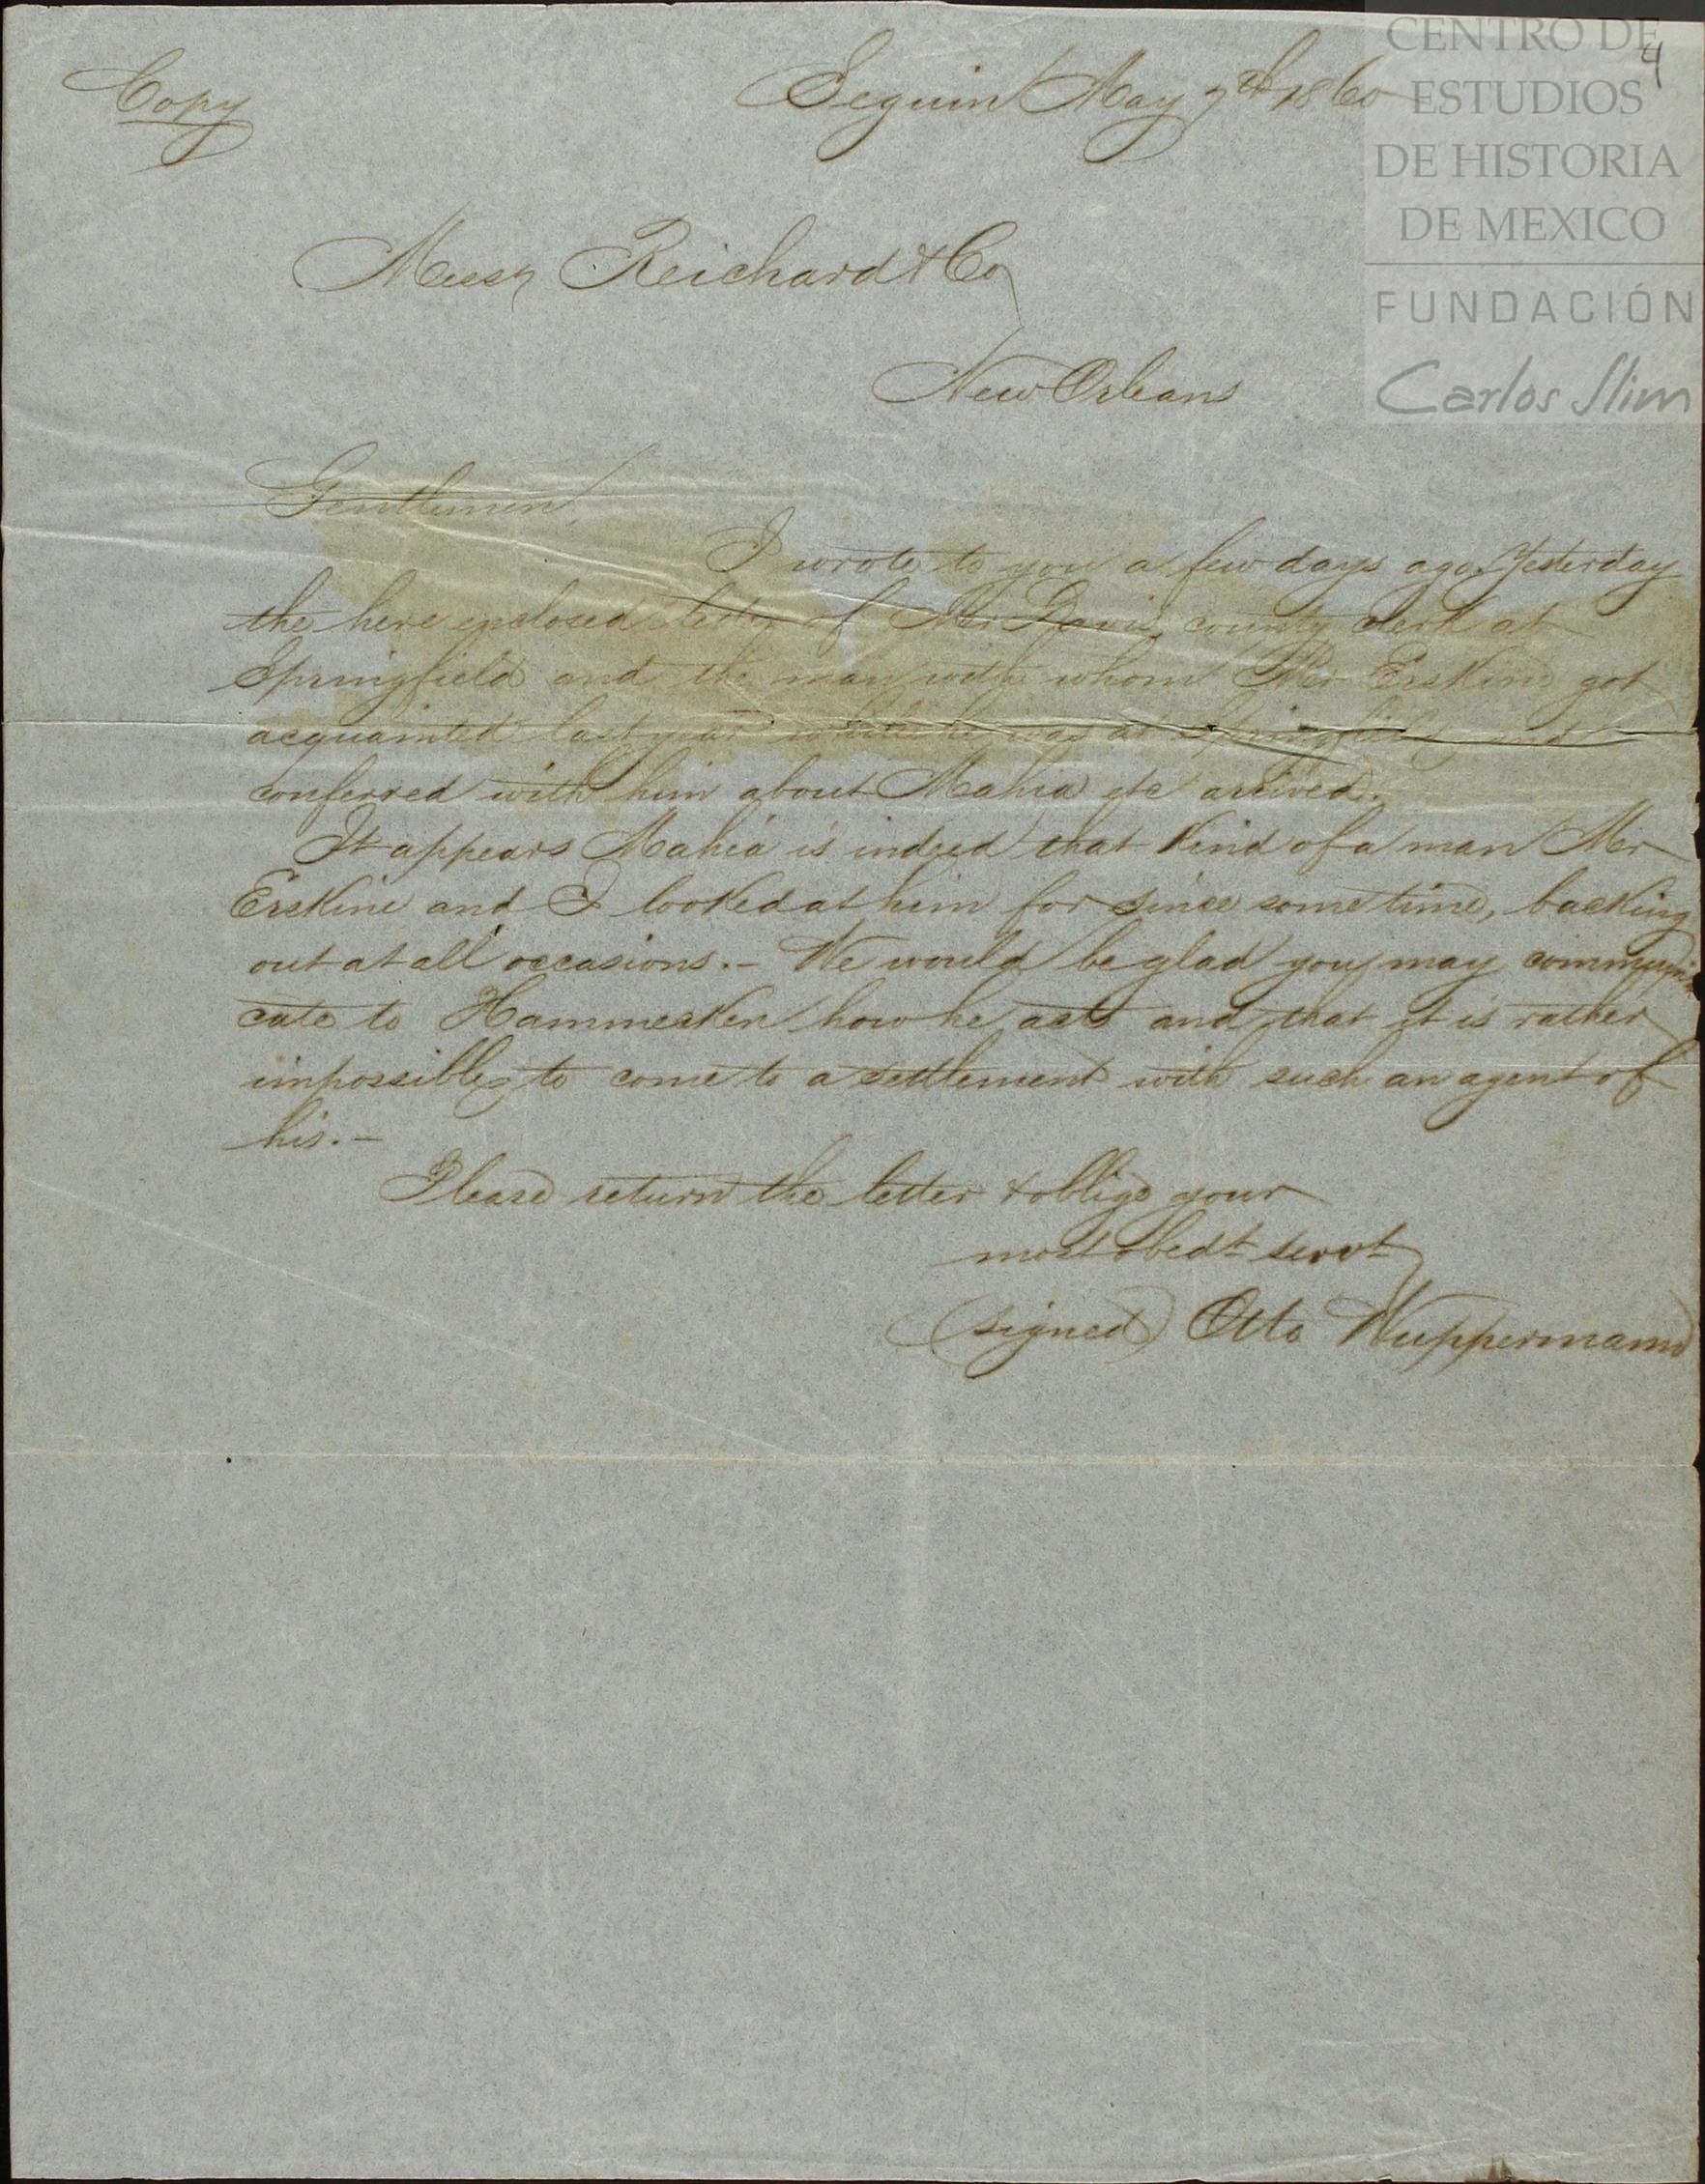 Copy
Seguin May 7th 1860
4
CENTRO DE
ESTUDIOS
DE HISTORIA
DE MEXICO
FUNDACIÓN
Carlos Slim
Messrs Reichard & Co
New Orleans
Gentlemen
I wrote to you a few days ago. Yesterday
the here enclosed letter of Mr Davis, county clerk at
Springfield and the man with whom Mr Erskine got
acquainted last year while he was at Springfield and
conferred with him about Mahia etc arrived.
It appears Mahia is indeed that kind of a man Mr
Erskine and I looked at him for since some time, backing
out at all occasions.- We would be glad you may communi
cate to Hammeken how he acts and that it is rather
impossible to come to a settlement with such an agent of
his.-
Please return the letter & oblige your
most obedt servt
(signed) Otto Wuppermann